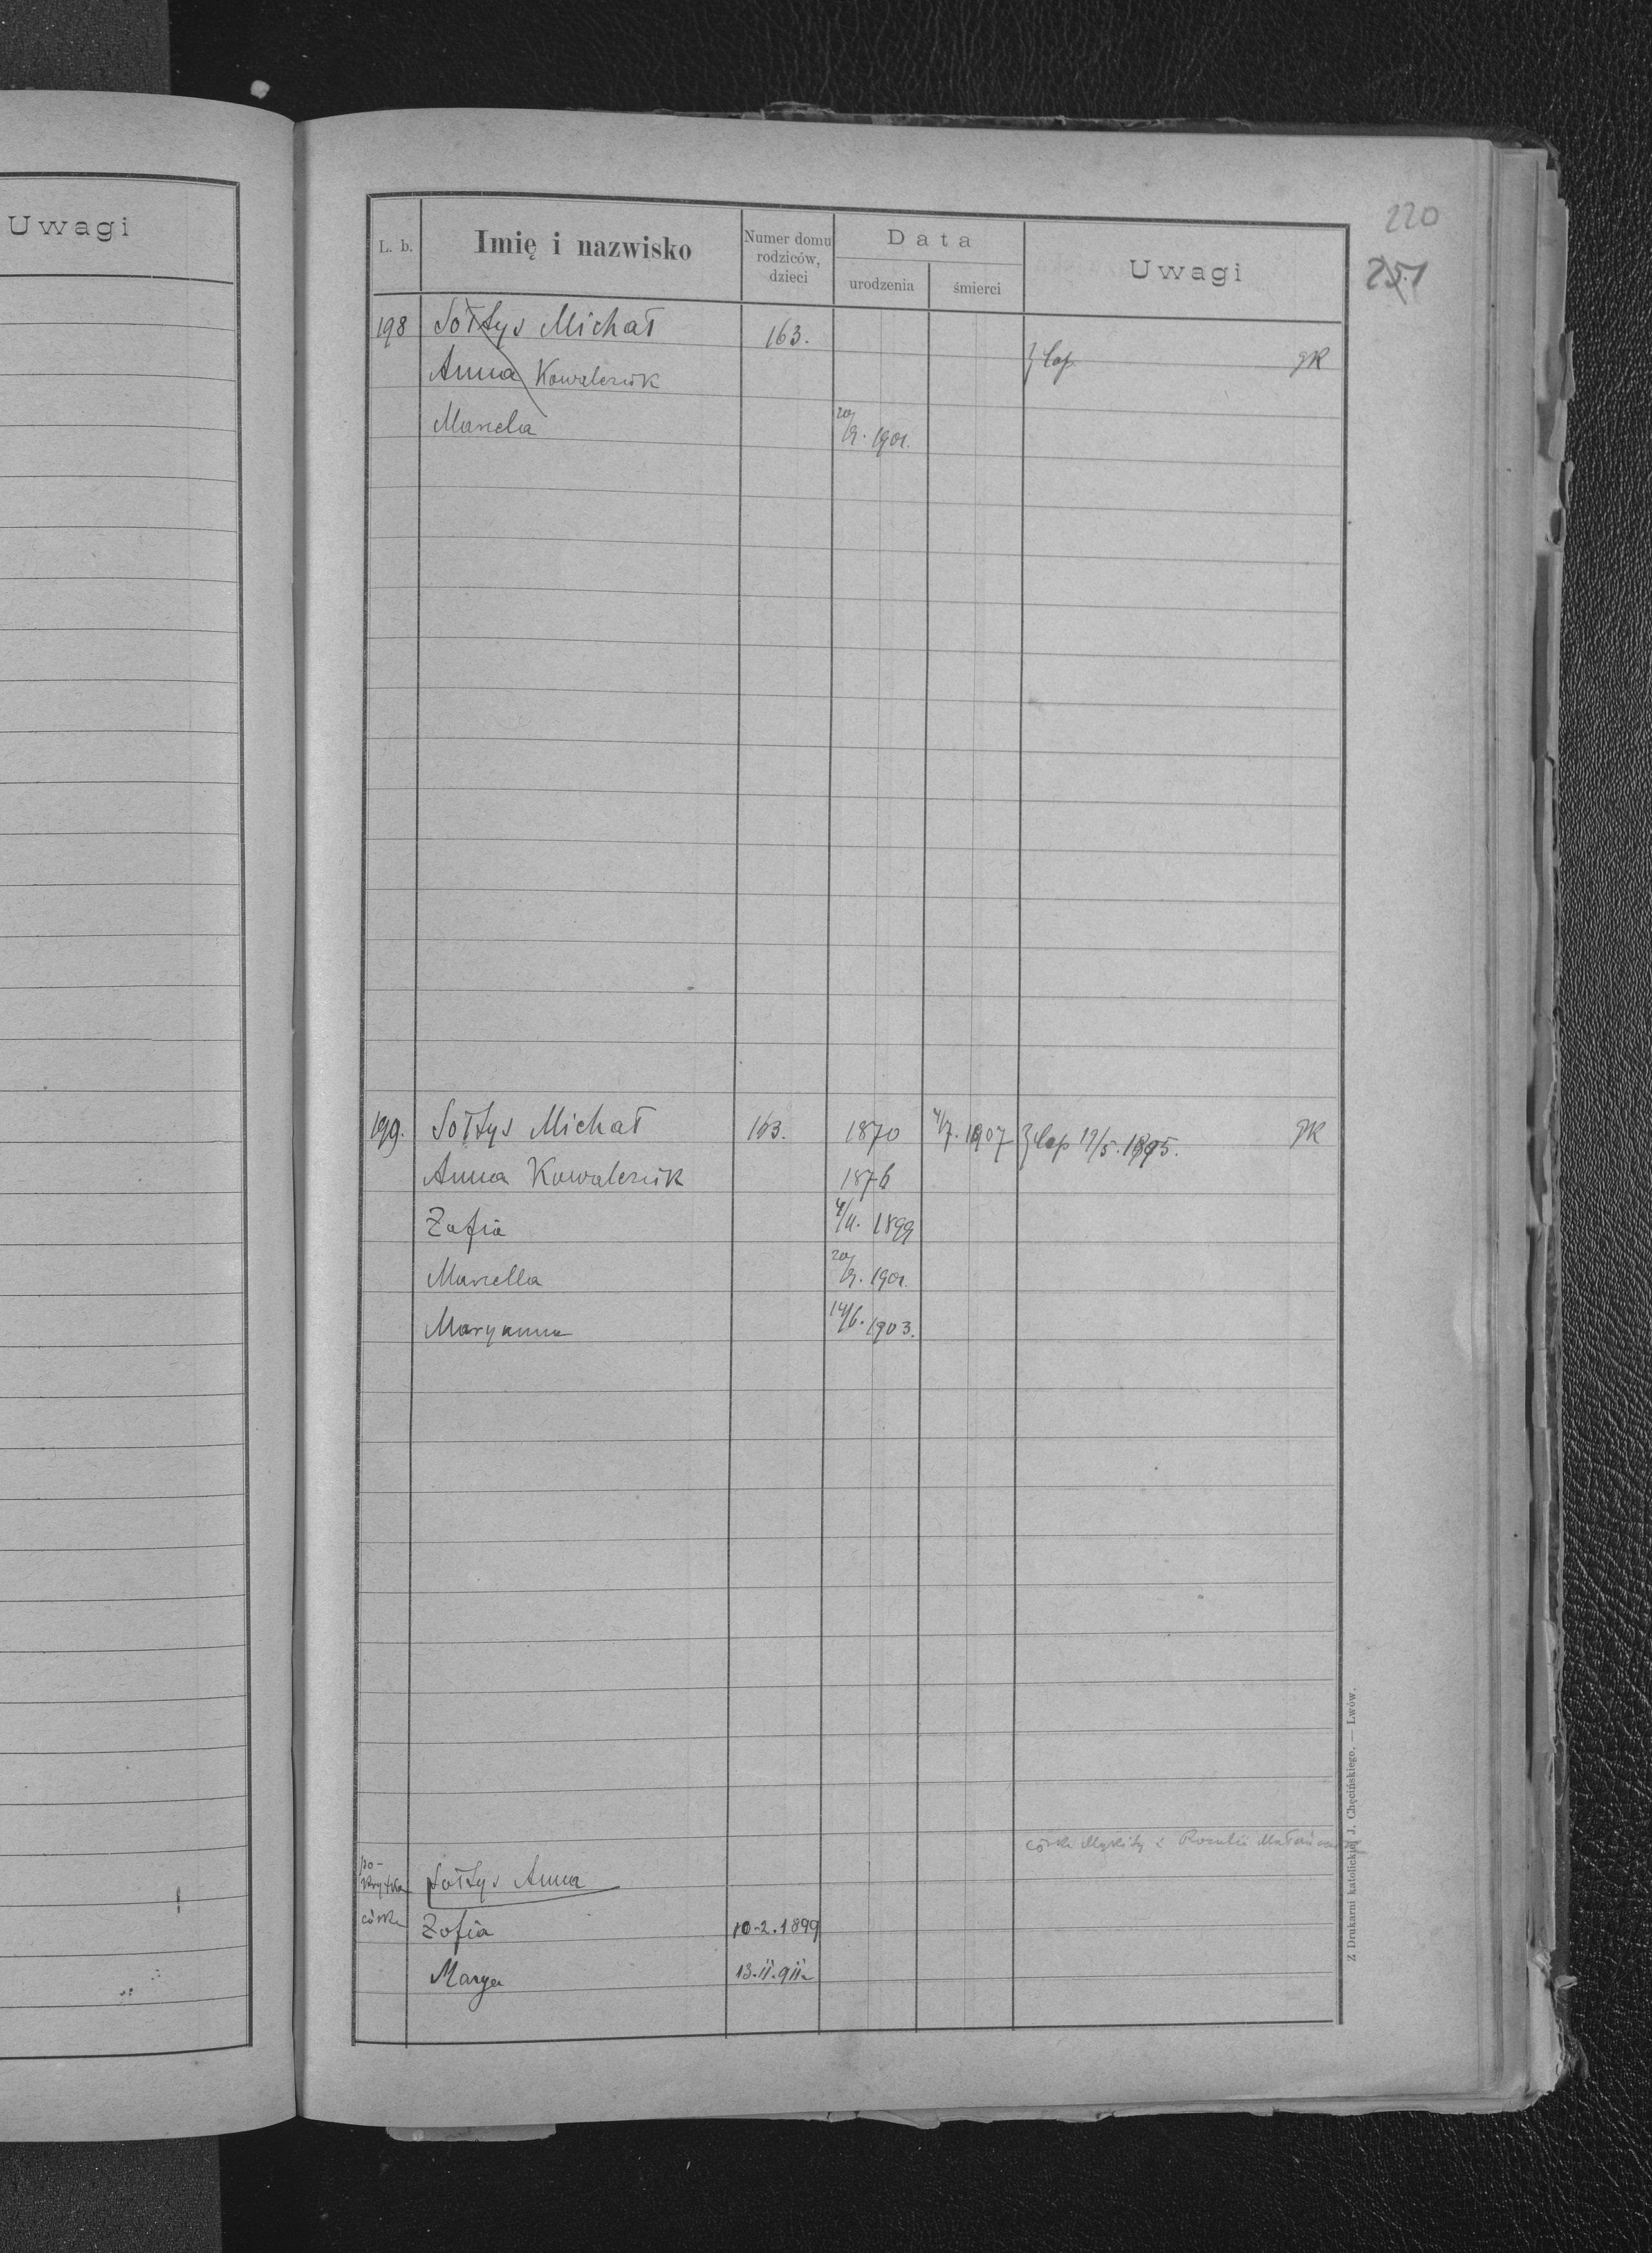 Uwagi
220
251
L. b. Imię i nazwisko Numer domu rodziców, dzieci Data urodzenia śmierci Uwagi
198 Sołtys Michał 163. } cop. gR
Anna Kowalczuk
Marcela 20/9. 1901.
199. Sołtys Michał 163. 1870 4/7. 1907 } cop 19/5. 1895. gR
Anna Kowalczuk 1876
Zofia 4/11. 1899
Marcella 20/9. 1901.
Maryanna 14/6. 1903.
córka Mykity i Rozalii
po-
krytka Sołtys Anna
córka Zofia 10-2.1899
Marya 13.II.911
Z Drukarni katolickiej J. Chęcińskiego. — Lwów.